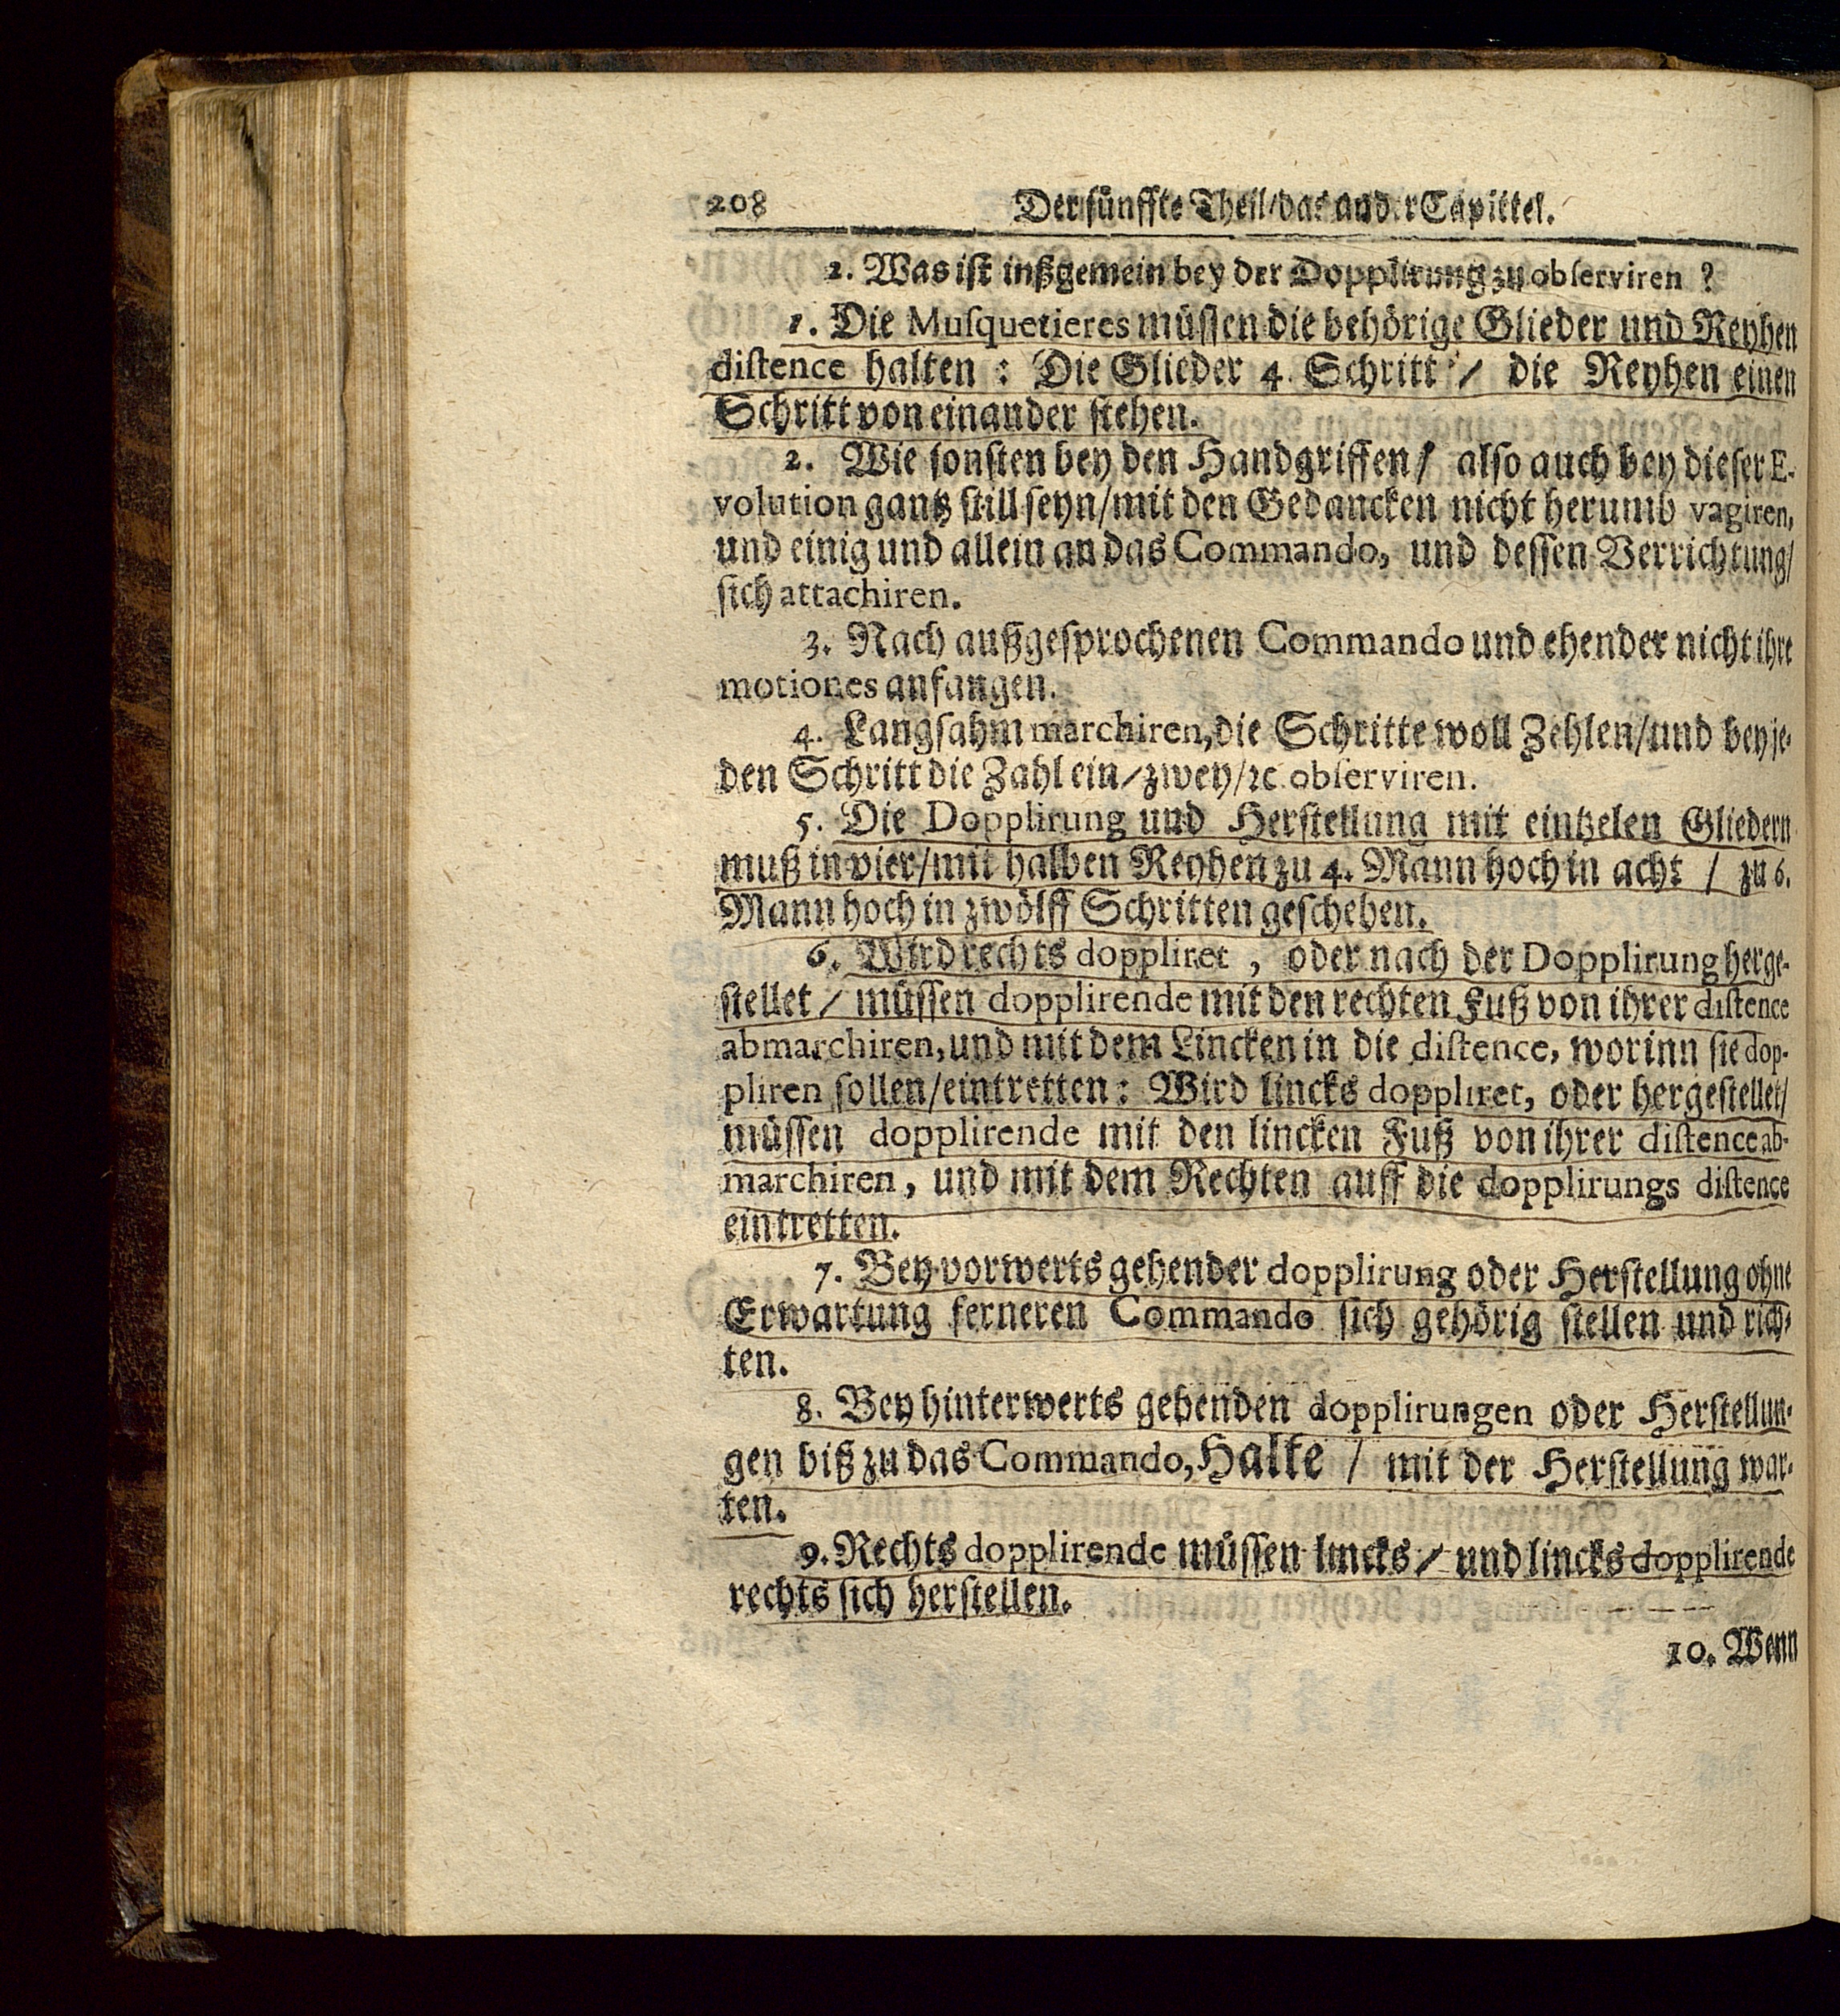 208 Der fünffte Theil/das ander Capittel.
2. Was ist inßgemein bey der Dopplirung zu observiren ?
1. Die Musquetieres müssen die behörige Glieder und Reyhen
distence halten : Die Glieder 4. Schritt / die Reyhen einen
Schritt von einander stehen.
2. Wie sonsten bey den Handgriffen / also auch bey dieser E-
volution gantz still seyn/mit den Gedancken nicht herumb vagiren,
und einig und allein an das Commando, und dessen Verrichtung/
sich attachiren.
3. Nach außgesprochenen Commando und ehender nicht ihre
motiones anfangen.
4. Langsahm marchiren, die Schritte woll Zehlen/und bey je-
den Schritt die Zahl ein/zwey/ꝛc. observiren.
5. Die Dopplirung und Herstellung mit eintzelen Gliedern
muß in vier/mit halben Reyhen zu 4. Mann hoch in acht / zu 6.
Mann hoch in zwölff Schritten geschehen.
6. Wird rechts doppliret , oder nach der Dopplirung herge-
stellet / müssen dopplirende mit den rechten Fuß von ihrer distence
abmarchiren, und mit dem Lincken in die distence, worinn sie dop-
pliren sollen/eintretten: Wird lincks doppliret, oder hergestellet/
müssen dopplirende mit den lincken Fuß von ihrer distence ab-
marchiren, und mit dem Rechten auff die dopplirungs distence
eintretten.
7. Bey vorwerts gehender dopplirung oder Herstellung ohne
Erwartung ferneren Commando sich gehörig stellen und rich-
ten.
8. Bey hinterwerts gehenden dopplirungen oder Herstellun-
gen biß zu das Commando, Halte / mit der Herstellung war-
ten.
9. Rechts dopplirende müssen lincks / und lincks dopplirende
rechts sich herstellen.
10. Wenn